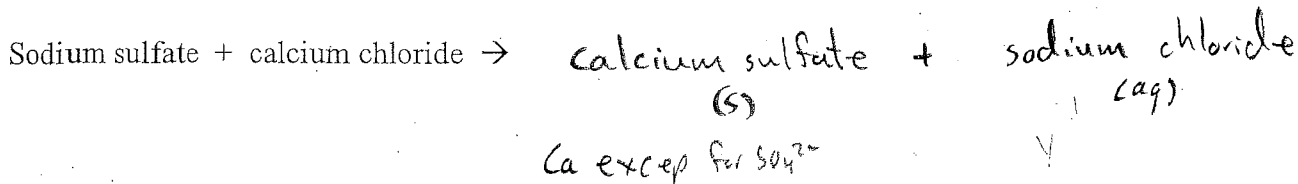 Sodium sulfate + calcium chloride → calcium sulfate + sodium chloride
(s) (aq)
Ca excep for SO₄²⁻